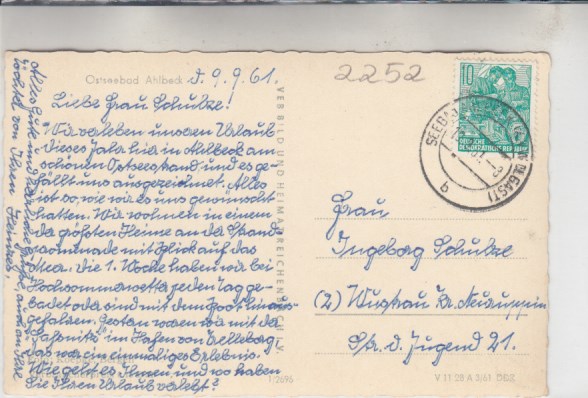 2252
Ostseebad Ahlbeck d. 9.9.61.
Liebe Frau Schulze!
Wir verleben unseren Urlaub
dieses Jahr hier in Ahlbeck am
schönen Ostseestrand und es ge-
fällt uns ausgezeichnet. Alles
ist so, wie wir es uns gewünscht
hatten. Wir wohnen in einem
der größten Heime an der Strand-
promenade mit Blick auf das
Meer. Die 1. Woche haben wir bei
Hochsommerwetter jeden Tag ge-
badet oder sind mit dem Boot hinaus-
gefahren. Gestern waren wir mit der
"Saßnitz" im Hafen von Trelleborg
das war ein einmaliges Erlebnis.
Wie geht es Ihnen und wo haben
Sie Ihren Urlaub verlebt?
Alles Gute und herzliche Grüße
von Ihren
VEB BILD UND HEIMAT REICHENBACH I. V.
10
DEUTSCHE
DEMOKRATISCHE REPUBLIK
SEEBAD
b
Frau
Ingeborg Schulze
(2) Wustrau Kr. Neuruppin
Str. d. Jugend 21.
1/2696
V 11 28 A 3/61 DDR